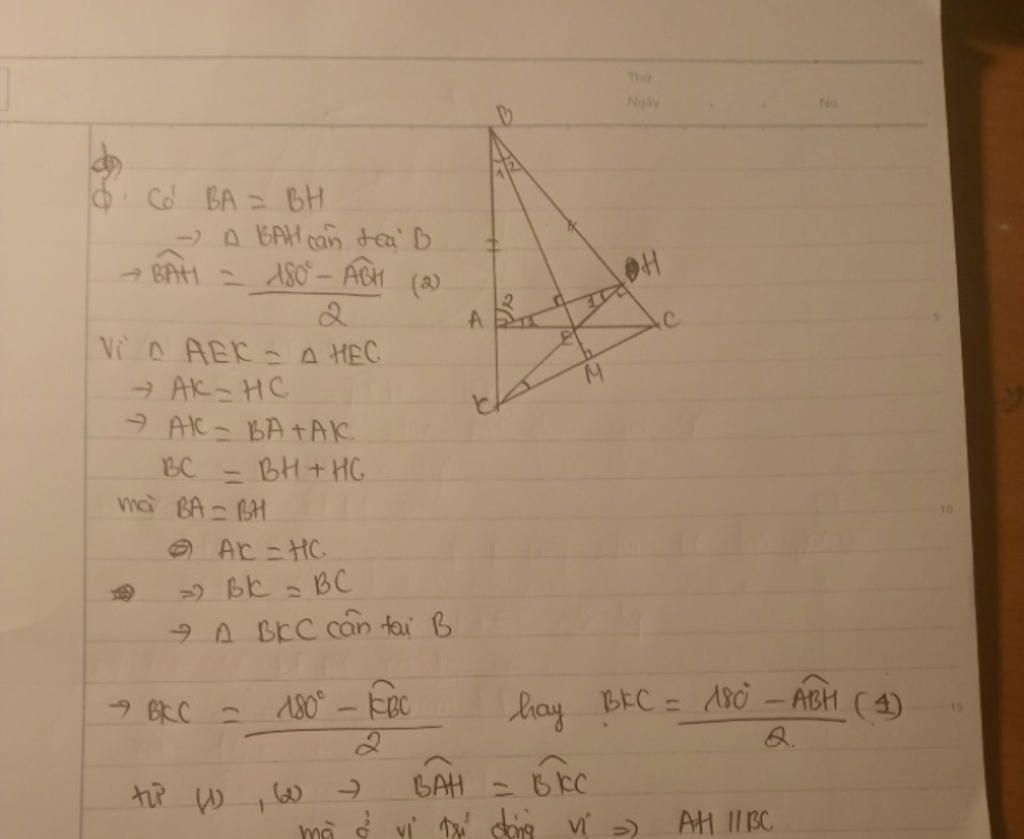 Thứ
Ngày . . No.
B
1 2
H
2 1
A E C
M
K
d. Có BA = BH
→ △ BAH cân tại B
→ BAH = 180° - ABH / 2 (2)
Vì △ AEK = △ HEC
→ AK = HC
→ AK = BA + AK
BC = BH + HC
mà BA = BH
AK = HC
⇒ BK = BC
→ △ BKC cân tại B
→ BKC = 180° - KBC / 2 hay BKC = 180° - ABH / 2 (1)
từ (1), (2) → BAH = BKC
mà ở vị trí đồng vị ⇒ AH // BC
5
10
15